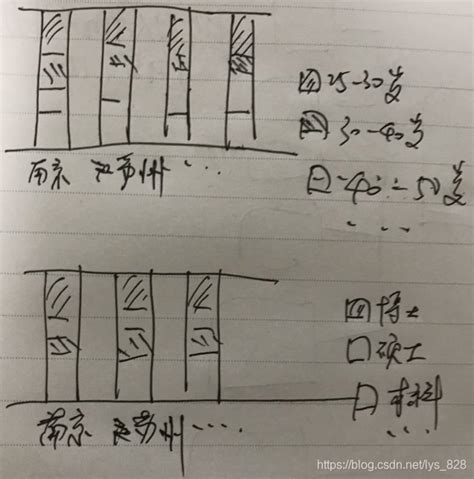 25-30岁
30-40岁
40-50岁
南京 苏州 ...
...
博士
硕士
本科
南京 苏州 ....
...
https://blog.csdn.net/lys_828